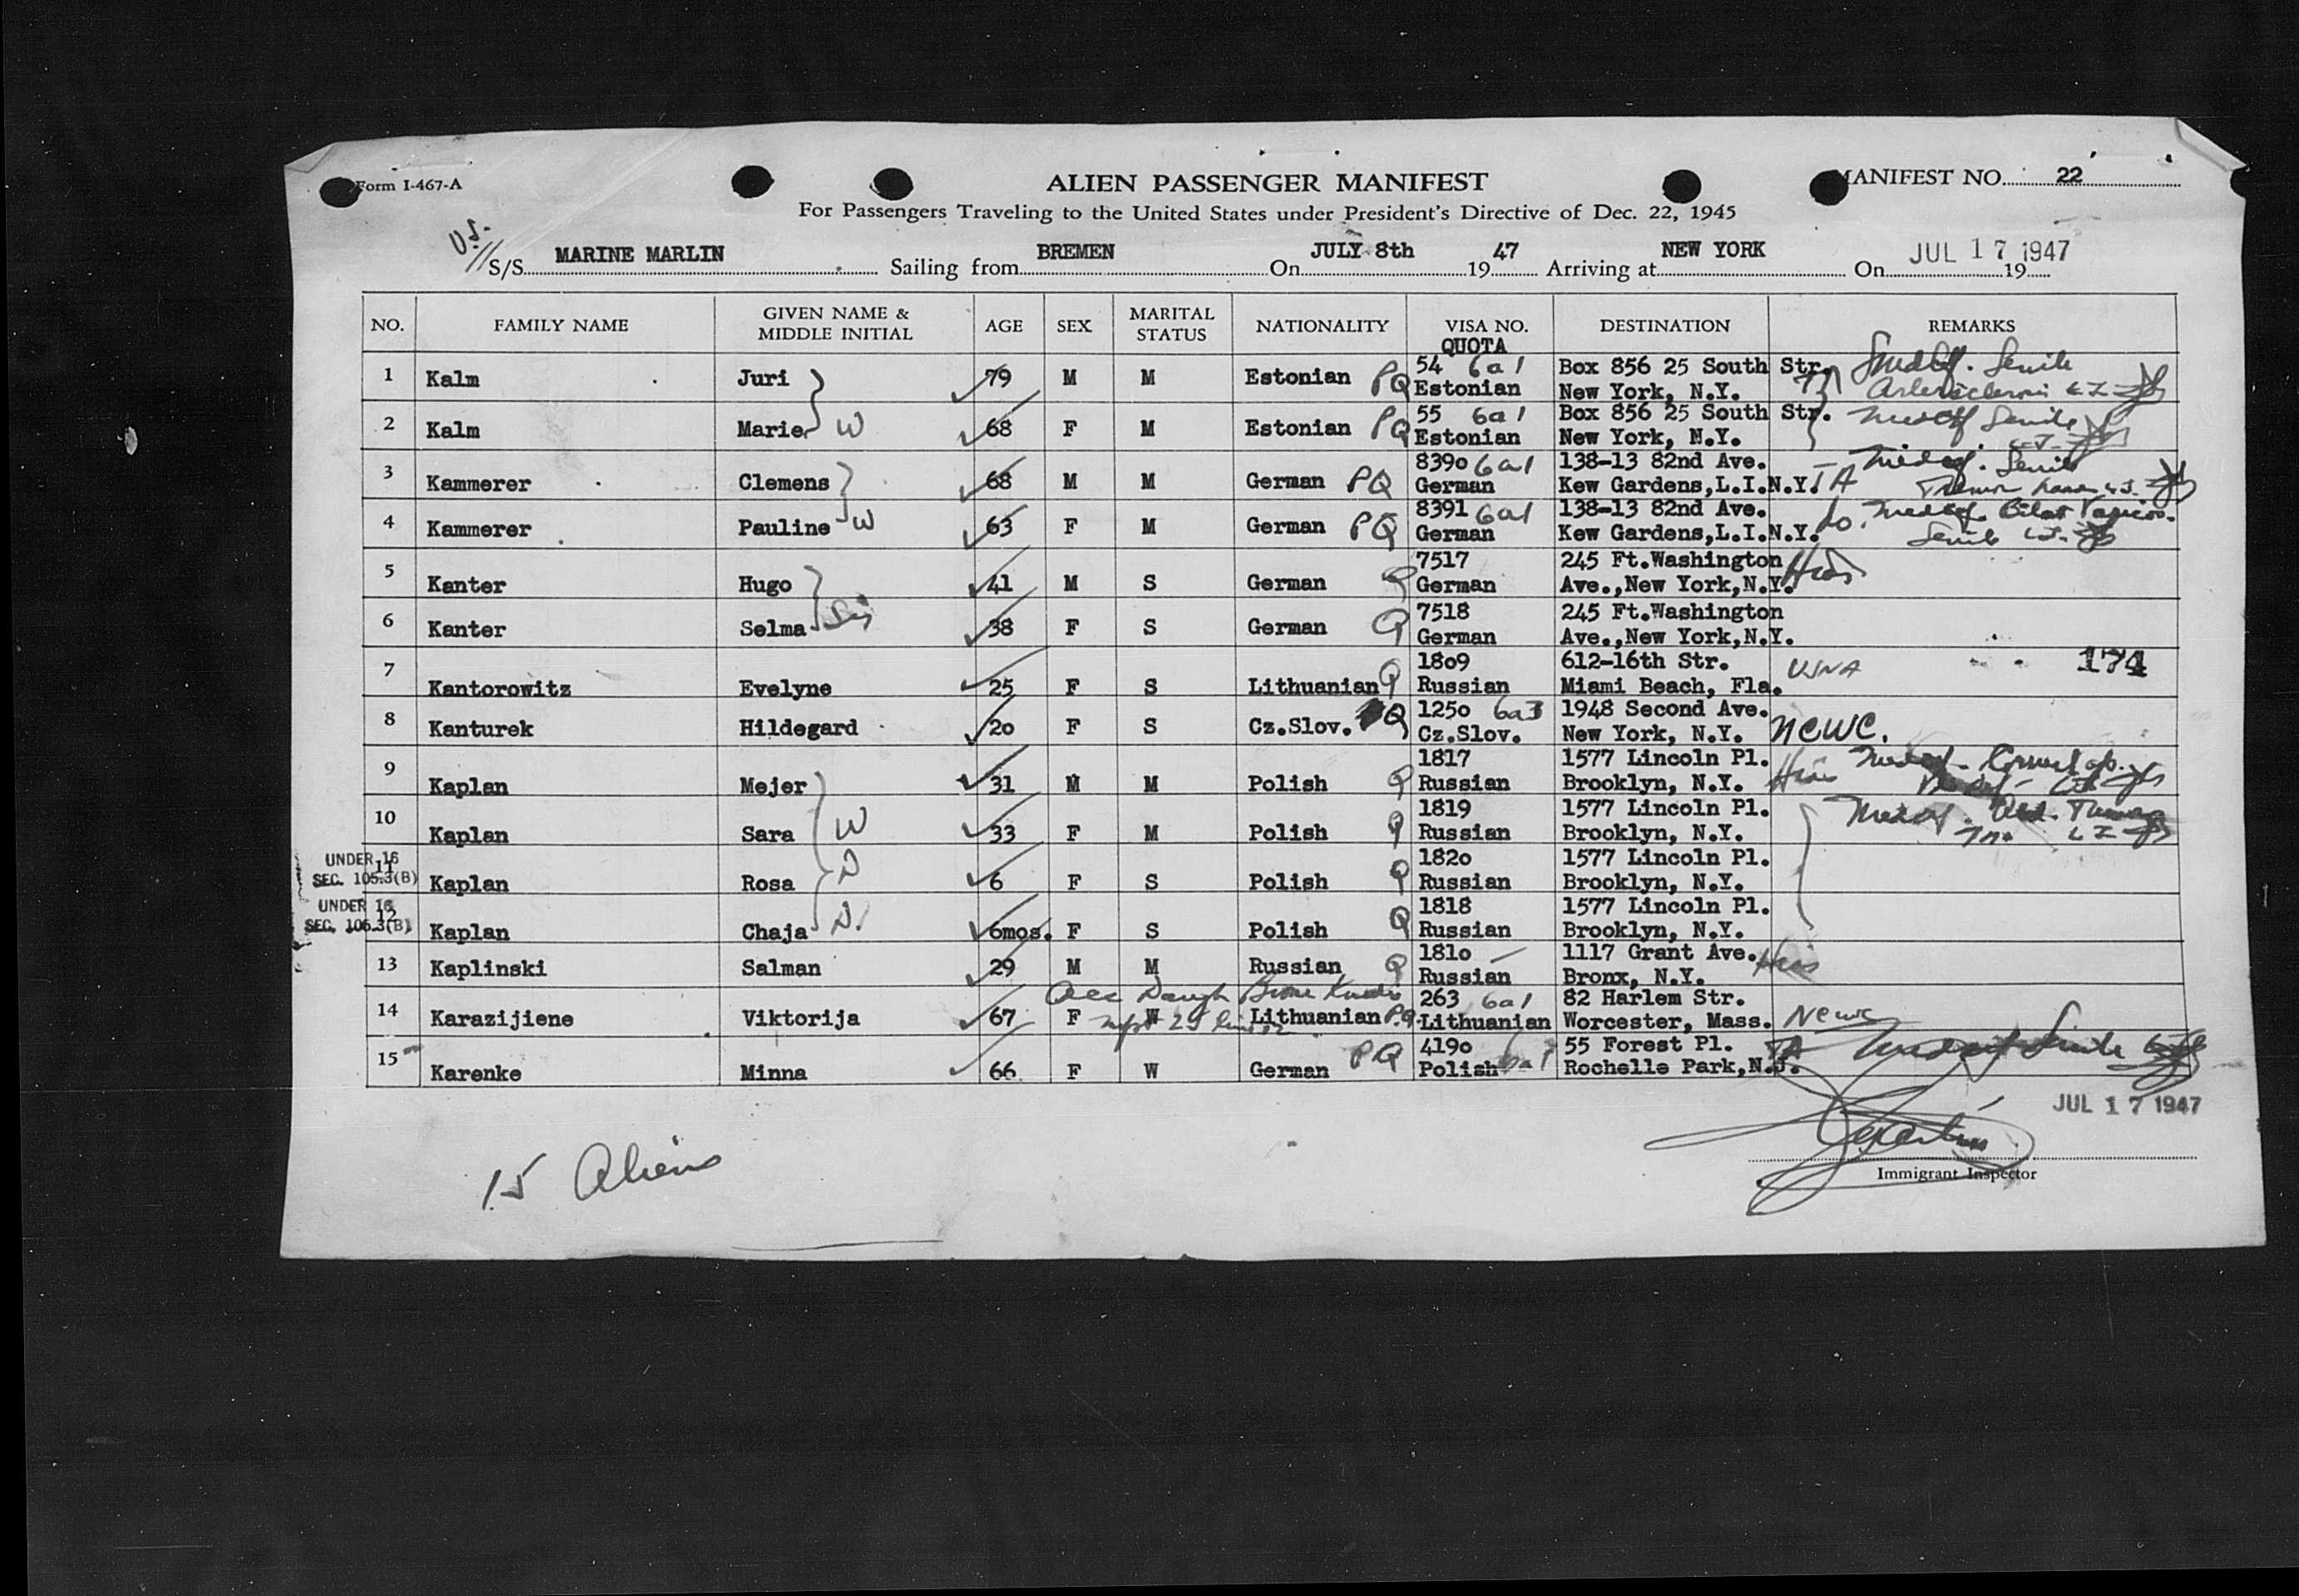 Form I-467-A
ALIEN PASSENGER MANIFEST
MANIFEST NO. 22
For Passengers Traveling to the United States under President's Directive of Dec. 22, 1945
U.S.
S/S MARINE MARLIN Sailing from BREMEN On JULY 8th 19 47 Arriving at NEW YORK On JUL 17 1947 19
NO. FAMILY NAME GIVEN NAME & MIDDLE INITIAL AGE SEX MARITAL STATUS NATIONALITY VISA NO. QUOTA DESTINATION REMARKS
1 Kalm Juri 79 M M Estonian PQ 54 6a1 Estonian Box 856 25 South Str. New York, N.Y. Senile
2 Kalm Marie W 68 F M Estonian PQ 55 6a1 Estonian Box 856 25 South Str. New York, N.Y. Senile
3 Kammerer Clemens 68 M M German PQ 8390 6a1 German 138-13 82nd Ave. Kew Gardens,L.I.N.Y. TA Senile
4 Kammerer Pauline W 63 F M German PQ 8391 6a1 German 138-13 82nd Ave. Kew Gardens,L.I.N.Y. do.
5 Kanter Hugo 41 M S German Q 7517 German 245 Ft.Washington Ave.,New York,N.Y. Hias
6 Kanter Selma Sis 38 F S German Q 7518 German 245 Ft.Washington Ave.,New York,N.Y.
174
7 Kantorowitz Evelyne 25 F S Lithuanian Q 1809 Russian 612-16th Str. Miami Beach, Fla.
8 Kanturek Hildegard 20 F S Cz.Slov. Q 1250 6a3 Cz.Slov. 1948 Second Ave. New York, N.Y. NCWC.
9 Kaplan Mejer 31 M M Polish Q 1817 Russian 1577 Lincoln Pl. Brooklyn, N.Y. Hias
10 Kaplan Sara W 33 F M Polish Q 1819 Russian 1577 Lincoln Pl. Brooklyn, N.Y.
UNDER 16 SEC. 105.3(B)
11 Kaplan Rosa D 6 F S Polish Q 1820 Russian 1577 Lincoln Pl. Brooklyn, N.Y.
UNDER 16 SEC. 105.3(B)
12 Kaplan Chaja D. 6mos. F S Polish Q 1818 Russian 1577 Lincoln Pl. Brooklyn, N.Y.
13 Kaplinski Salman 29 M M Russian Q 1810 Russian 1117 Grant Ave. Bronx, N.Y. Hias
14 Karazijiene Viktorija 67 F W Lithuanian PQ 263 6a1 Lithuanian 82 Harlem Str. Worcester, Mass. NCWC
15 Karenke Minna 66 F W German PQ 4190 6a1 Polish 55 Forest Pl. Rochelle Park,N.J. TA Senile
JUL 17 1947
Immigrant Inspector
15 Aliens